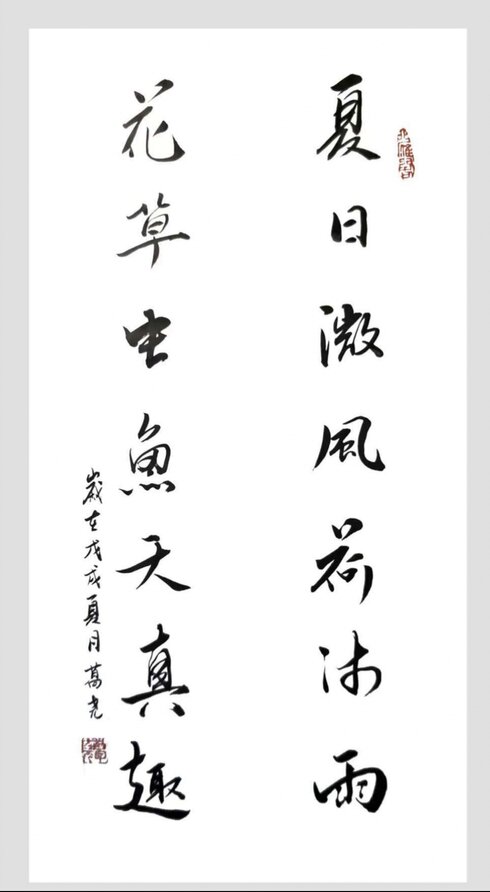 夏日微風荷沐雨
花草虫魚天真趣
歲在戊戌夏月